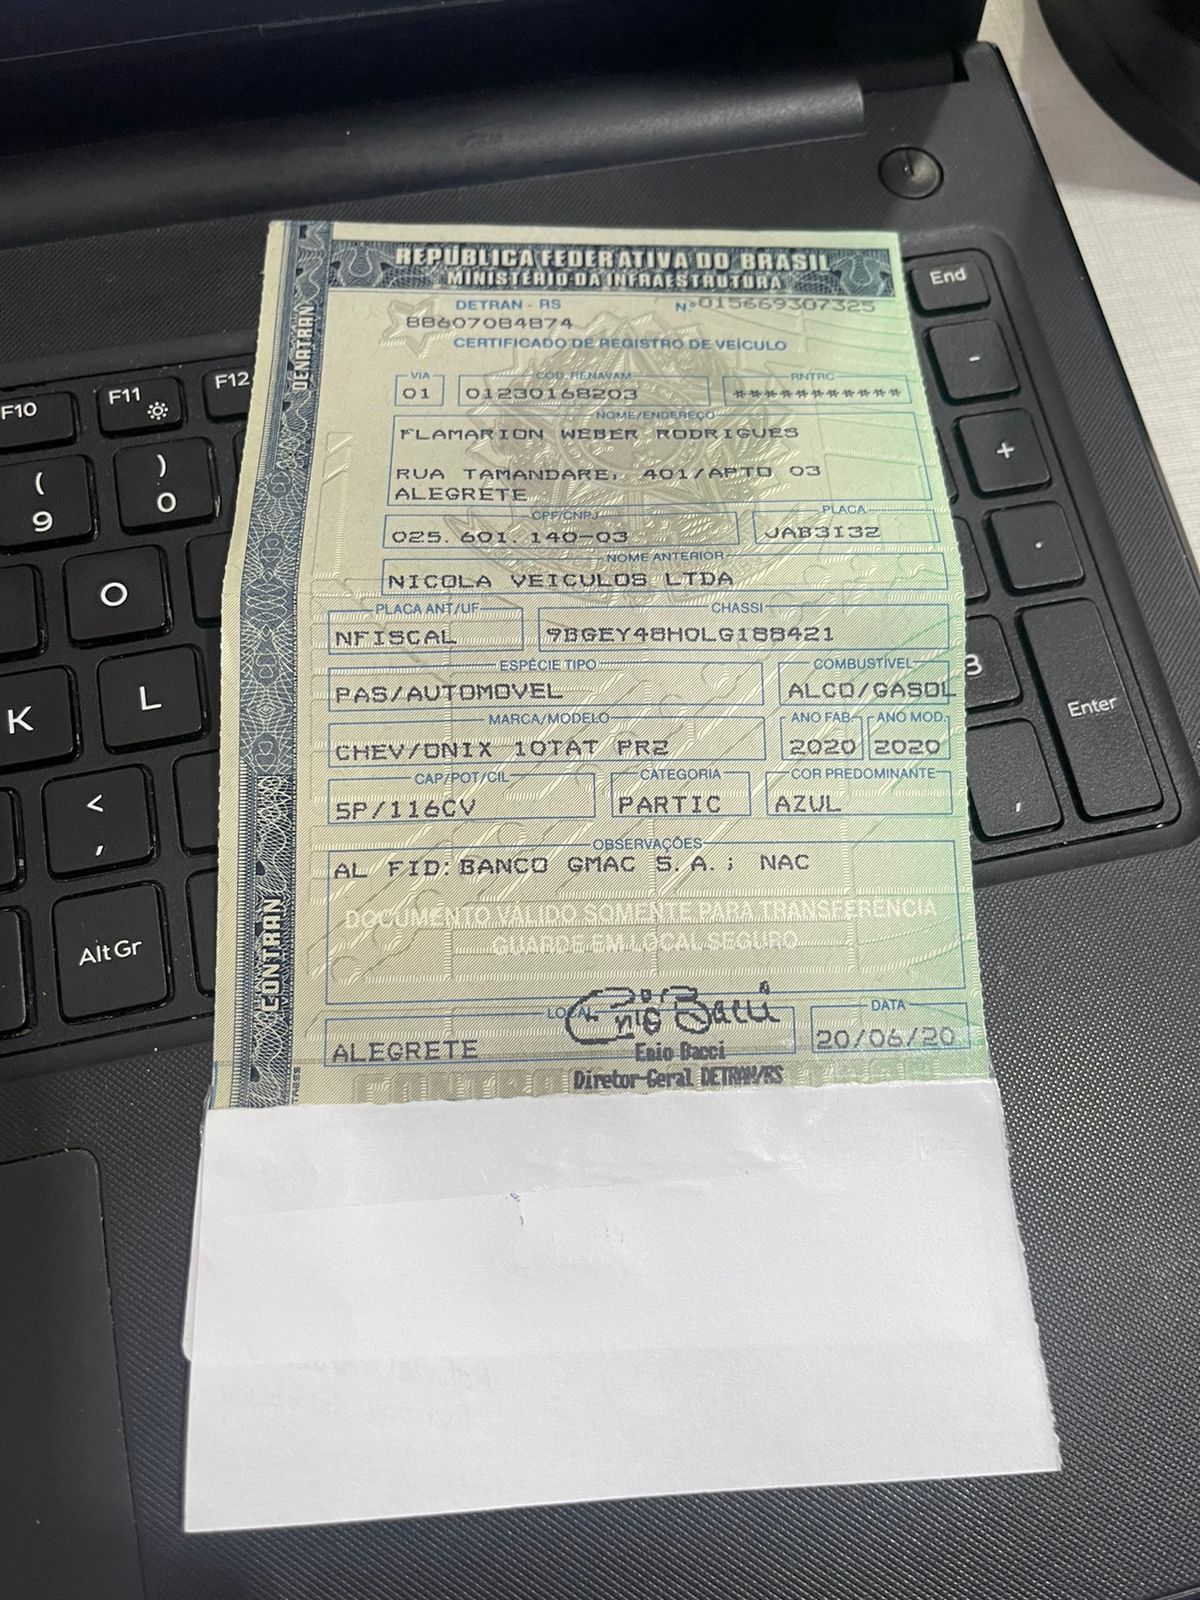 REPÚBLICA FEDERATIVA DO BRASIL
MINISTÉRIO DA INFRAESTRUTURA
DENATRAN
CONTRAN
DETRAN - RS
Nº 015669307325
88607084874
CERTIFICADO DE REGISTRO DE VEÍCULO
VIA
COD. RENAVAM
RNTRC
01
01230168203
***********
NOME/ENDEREÇO
FLAMARION WEBER RODRIGUES
RUA TAMANDARE, 401/APTO 03
ALEGRETE
CPF/CNPJ
PLACA
025.601.140-03
JAB3I32
NOME ANTERIOR
NICOLA VEICULOS LTDA
PLACA ANT/UF
CHASSI
NFISCAL
9BGEY48H0LG188421
ESPÉCIE TIPO
COMBUSTÍVEL
PAS/AUTOMOVEL
ALCO/GASOL
MARCA/MODELO
ANO FAB.
ANO MOD.
CHEV/ONIX 10TAT PR2
2020
2020
CAP/POT/CIL
CATEGORIA
COR PREDOMINANTE
5P/116CV
PARTIC
AZUL
OBSERVAÇÕES
AL FID:BANCO GMAC S.A.; NAC
DOCUMENTO VÁLIDO SOMENTE PARA TRANSFERÊNCIA
GUARDE EM LOCAL SEGURO
LOCAL
DATA
ALEGRETE
20/06/20
Enio Bacci
Enio Bacci
Diretor-Geral DETRAN/RS
F10
F11
F12
End
(
9
)
0
-
+
.
O
K
L
3
Enter
<
,
,
Alt Gr